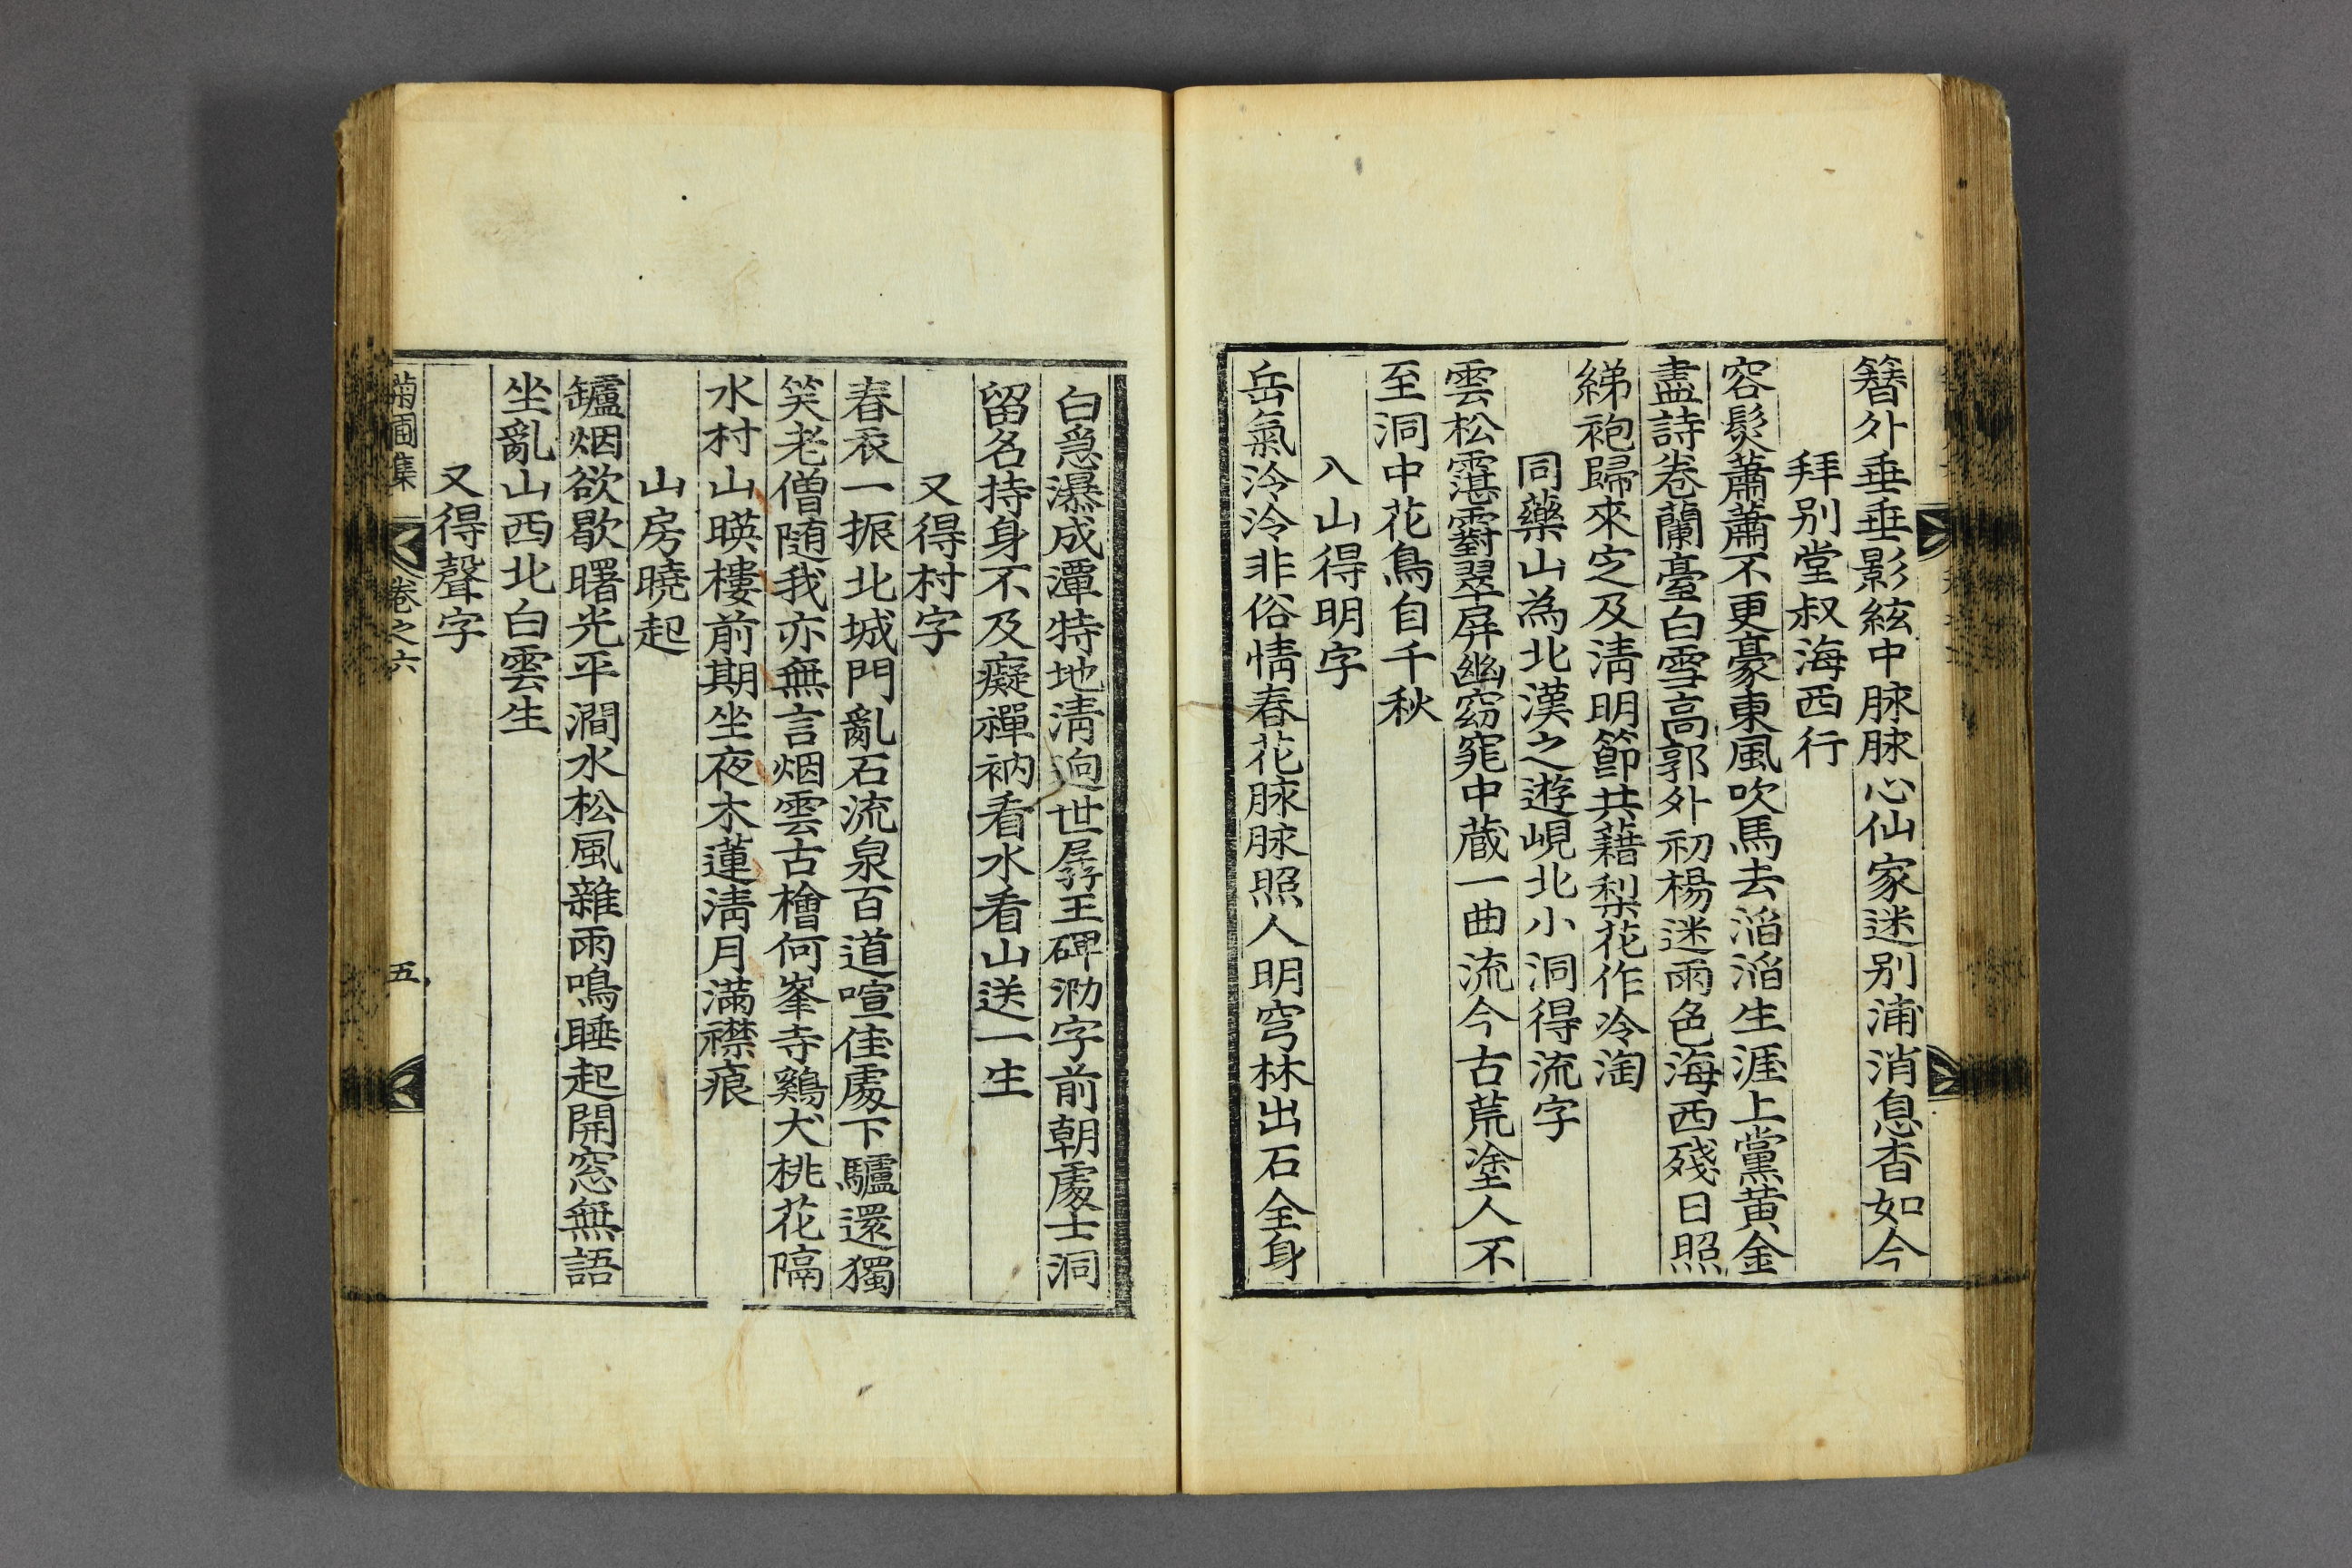 簪外垂垂影絃中脉脉心仙家迷別浦消息杳如今
拜別堂叔海西行
容鬂蕭蕭不更豪東風吹馬去滔滔生涯上黨黃金
盡詩卷蘭臺白雪高郭外初楊迷雨色海西殘日照
綈袍歸來定及淸明節共藉梨花作冷淘
同藥山為北漢之遊峴北小洞得流字
雲松霮䨴翠屏幽窈窕中蔵一曲流今古荒塗人不
至洞中花鳥自千秋
入山得明字
岳氣泠泠非俗情春花脉脉照人明穹林出石全身
白急瀑成潭特地淸逈世孱王碑泐字前朝處士洞
留名持身不及癡禪衲看水看山送一生
又得村字
春衣一振北城門亂石流泉百道喧佳處下驢還獨
笑老僧随我亦無言烟雲古檜何峯寺鷄犬桃花隔
水村山暎樓前期坐夜木蓮淸月滿襟痕
山房曉起
鑪烟欲歇曙光平澗水松風雜雨鳴睡起開窓無語
坐亂山西北白雲生
又得聲字
菊圃集
卷之六
五